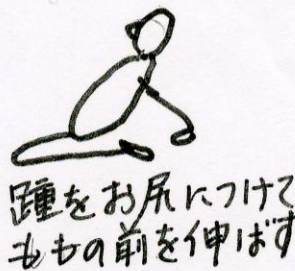 踵をお尻につけて
ももの前を伸ばす